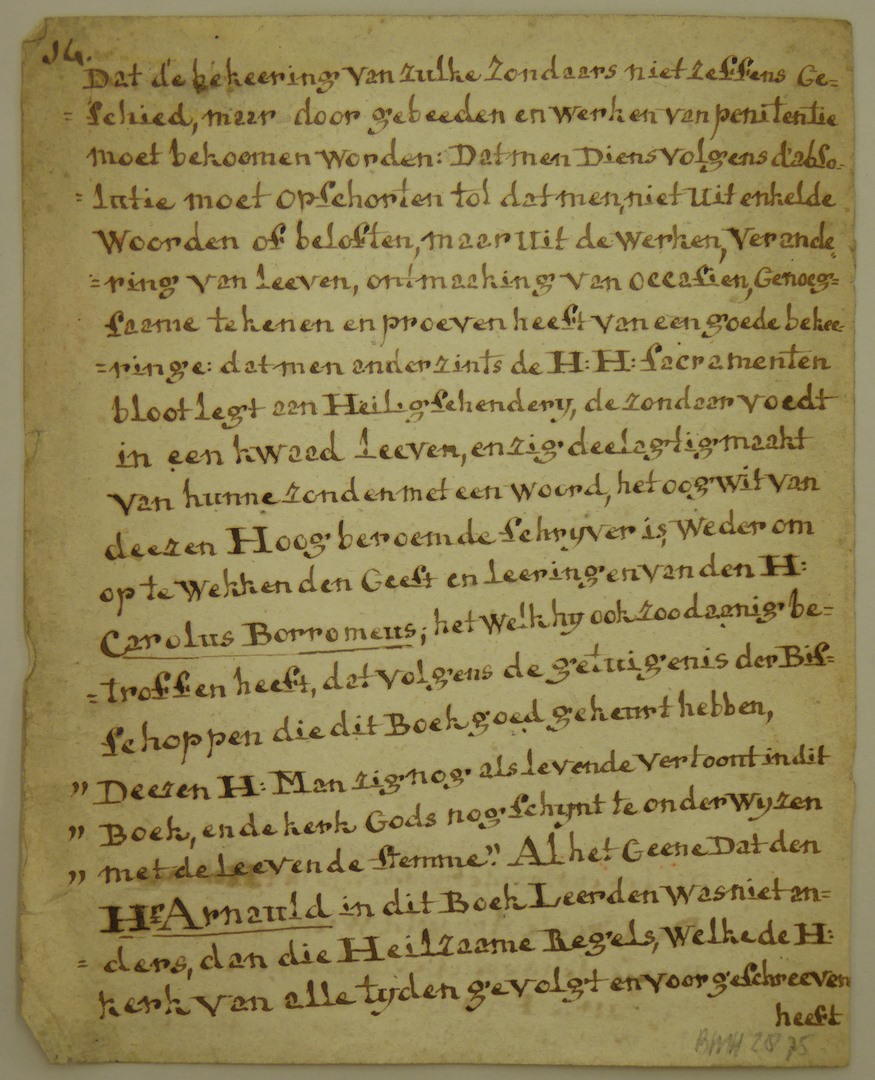 14.
Dat de bekeering van zulke zondaars niet zeffens Ge=
=schied, maar door gebeeden en werken van penitentie
moet bekoomen worden: Dat men Diensvolgens d'abso=
=lutie moet opschorten tot dat men, niet uit enkelde
Woorden of beloften, maar uit de werken, verande
=ring van leeven, ontmaaking van occasien, Genoeg=
saame tekenen en proeven heeft van een goede bekee=
=ringe: dat men anderzints de H: H: sacramenten
bloot legt aan Heiligschendery, de zondaar voedt
in een kwaad leeven, en zig deelagtig maakt
van hunne zonden met een woord, het oogwit van
deezen Hoogberoemde schryver is, wederom
op te wekken den Geest en leeringen van den H:
Carolus Borromeus, het welk hy ook zoodaanig be=
=troffen heeft, dat volgens de getuigenis der Bis=
schoppen die dit Boek goed gekeurt hebben,
" Deezen H: Man zig nog als levende vertoont in dit
" Boek, en de kerk Gods nog schynt te onderwyzen
" met de leevende stemme". Al het Geene Dat den
Hr Arnauld in dit Boek Leerden was niet an=
= ders, dan die Heilzaame Regels, Welke de H:
kerk van alle tyden gevolgt en voorgeschreeven
heeft
BMH 28 75